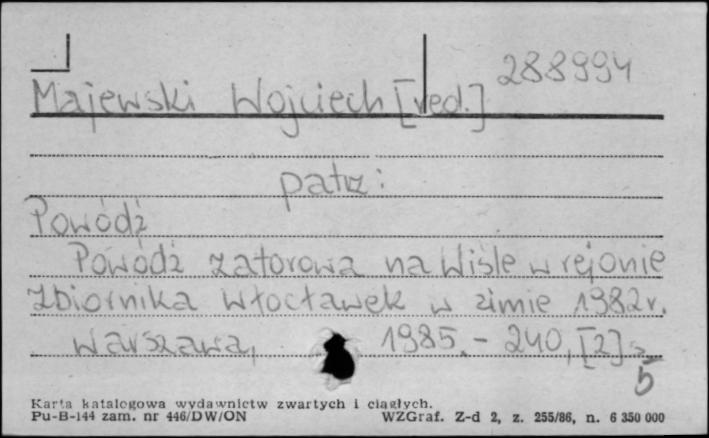 288994
Majewski Wojciech [red.]
patrz:
Powódź
Powódź zatorowa na Wiśle w rejonie
zbiornika Włocławek w zimie 1982 r.
Warszawa, 1985. - 240, [2] s.
5
Karta katalogowa wydawnictw zwartych i ciągłych.
Pu-B-144 zam. nr 446/DW/ON WZGraf. Z-d 2, z. 255/86, n. 6 350 000